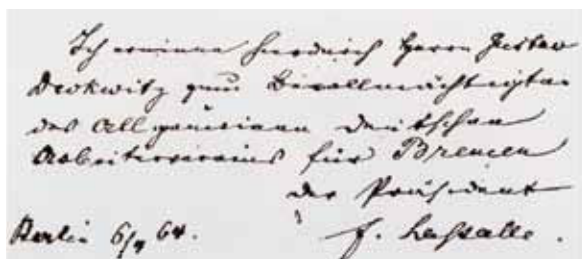 Ich ernenne hierdurch Herrn Gustav
Deckwitz zum Bevollmächtigten
des Allgemeinen deutschen
Arbeitervereins für Bremen
der Präsident
Berlin 6/4 64. F. Lassalle.